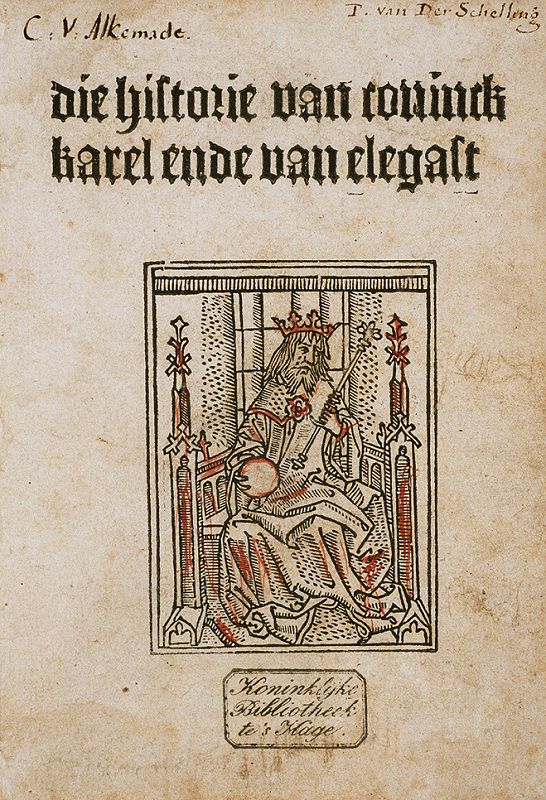 C: V: Alkemade.
P. van Der Schelling
die historie van coninck
karel ende van elegast
Koninklijke
Bibliotheek
te 's Hage.